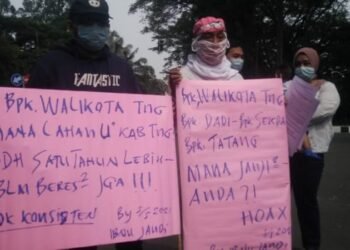 FANTASTIC
BPK. WALIKOTA TNG
MANA LAHAN U² KAB TNG
DH SATU TAHUN LEBIH-
BLM BERES² JGA !!!
KONSISTEN
BPK. WALIKOTA TNG
BPK. DADI-BPK SEKDA
BPK. TATANG
MANA JANJI²
ANDA ?!
HOAX